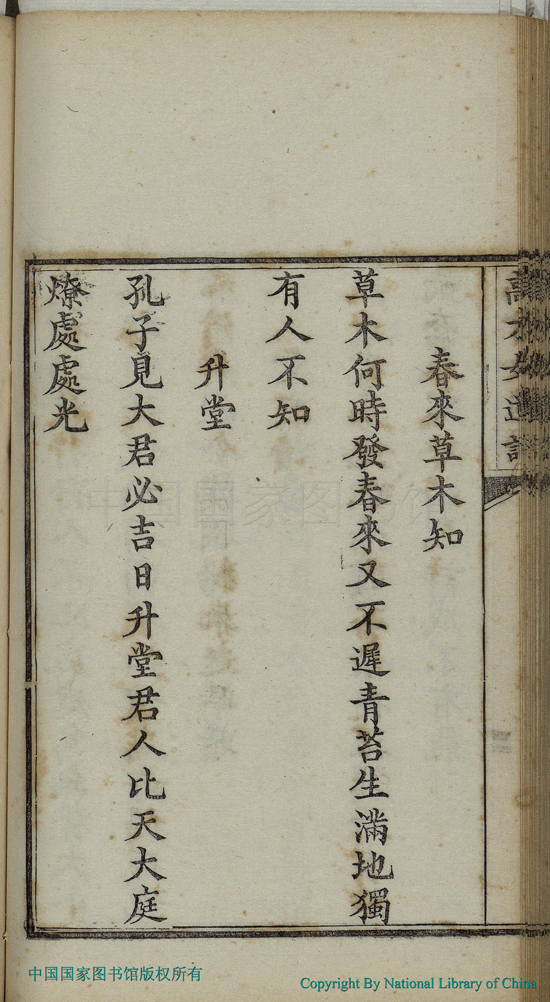 春來草木知
草木何時發春來又不遲青苔生滿地獨
有人不知
升堂
孔子見大君必吉日升堂君人比天大庭
燎處處光
中国国家图书馆
中国国家图书馆版权所有
Copyright By National Library of China